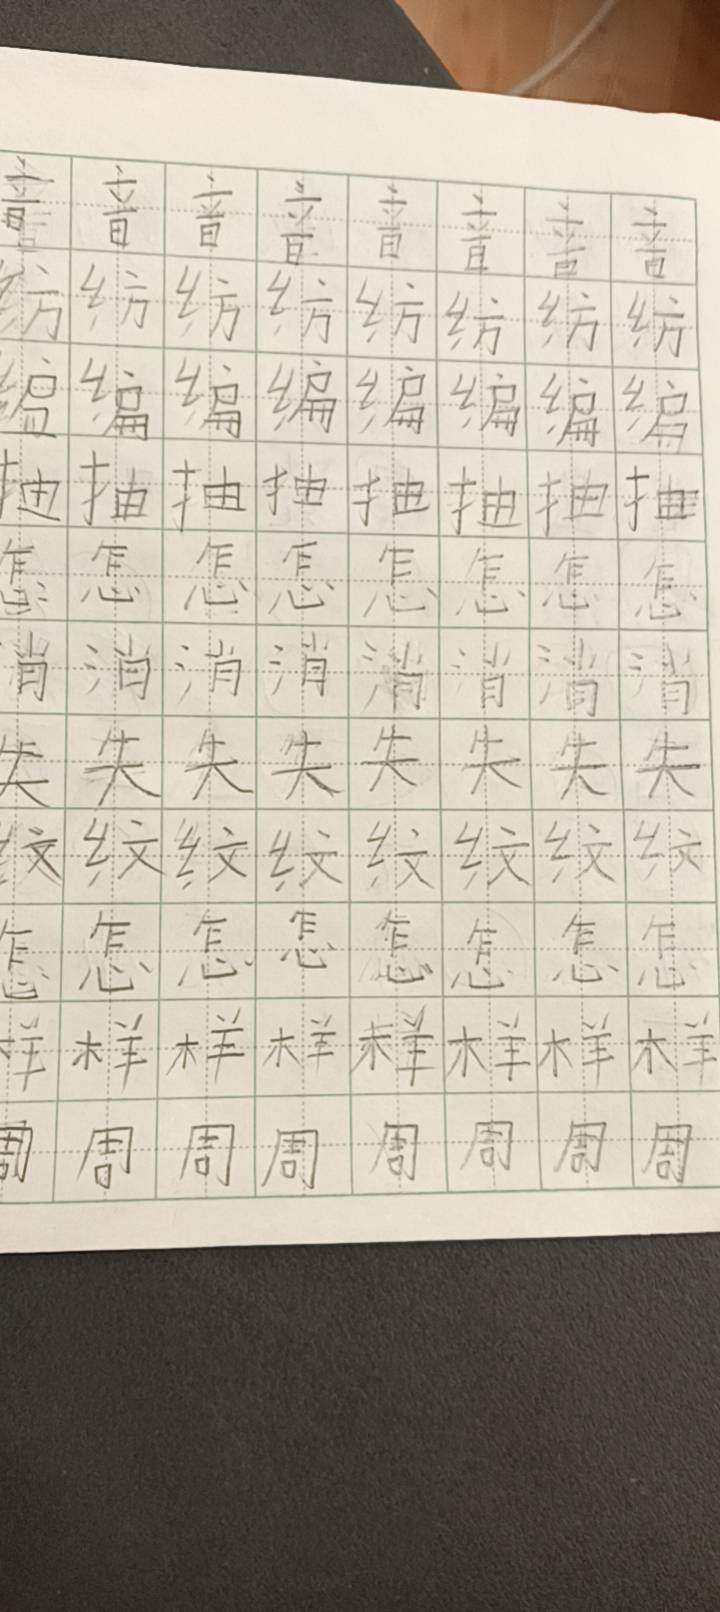 音音音音音音音音
纺纺纺纺纺纺纺纺
编编编编编编编编
抽抽抽抽抽抽抽抽
怎怎怎怎怎怎怎怎
消消消消消消消消
失失失失失失失失
纹纹纹纹纹纹纹纹
怎怎怎怎怎怎怎怎
样样样样样样样样
周周周周周周周周